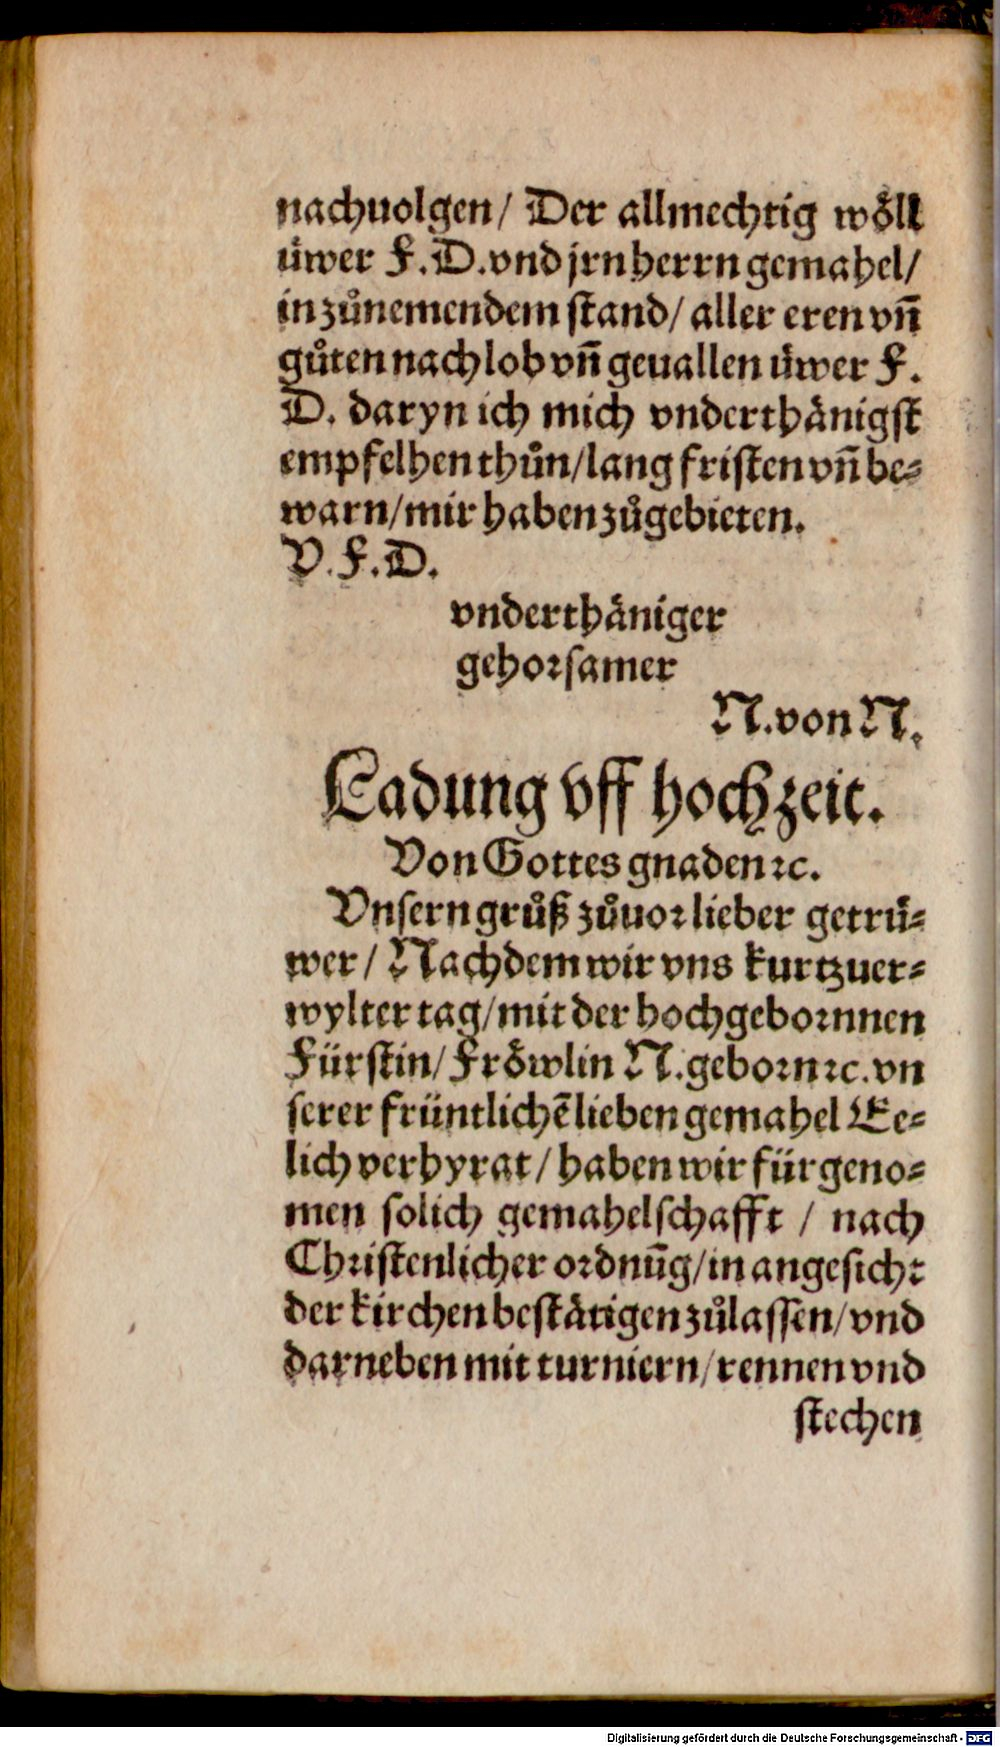 nachuolgen/ Der allmechtig wöll
üwer F.D.vnd jrn herrn gemahel/
in zůnemendem stand/ aller eren vn̄
gůten nach lob vn̄ geuallen üwer F.
D. daryn ich mich vnderthänigst
empfelhen thůn/lang fristen vn̄ be⸗
warn/mir haben zůgebieten.
V.F.D.
vnderthäniger
gehoꝛsamer
N.von N.
Ladung vff hochzeit.
Von Gottes gnaden ꝛc.
Vnsern grůß zůuoꝛ lieber getrü⸗
wer/ Nachdem wir vns kurtzuer⸗
wylter tag/mit der hochgeboꝛnnen
Fürstin/ Fröwlin N.geboꝛn ꝛc.vn
serer früntlichē lieben gemahel Ee⸗
lich verhyrat/ haben wir fürgeno⸗
men solich gemahelschafft / nach
Chꝛistenlicher oꝛdnūg/in angesicht
der kirchen bestätigen zůlassen/vnd
darneben mit turniern/rennen vnd
stechen
Digitalisierung gefördert durch die Deutsche Forschungsgemeinschaft - DFG